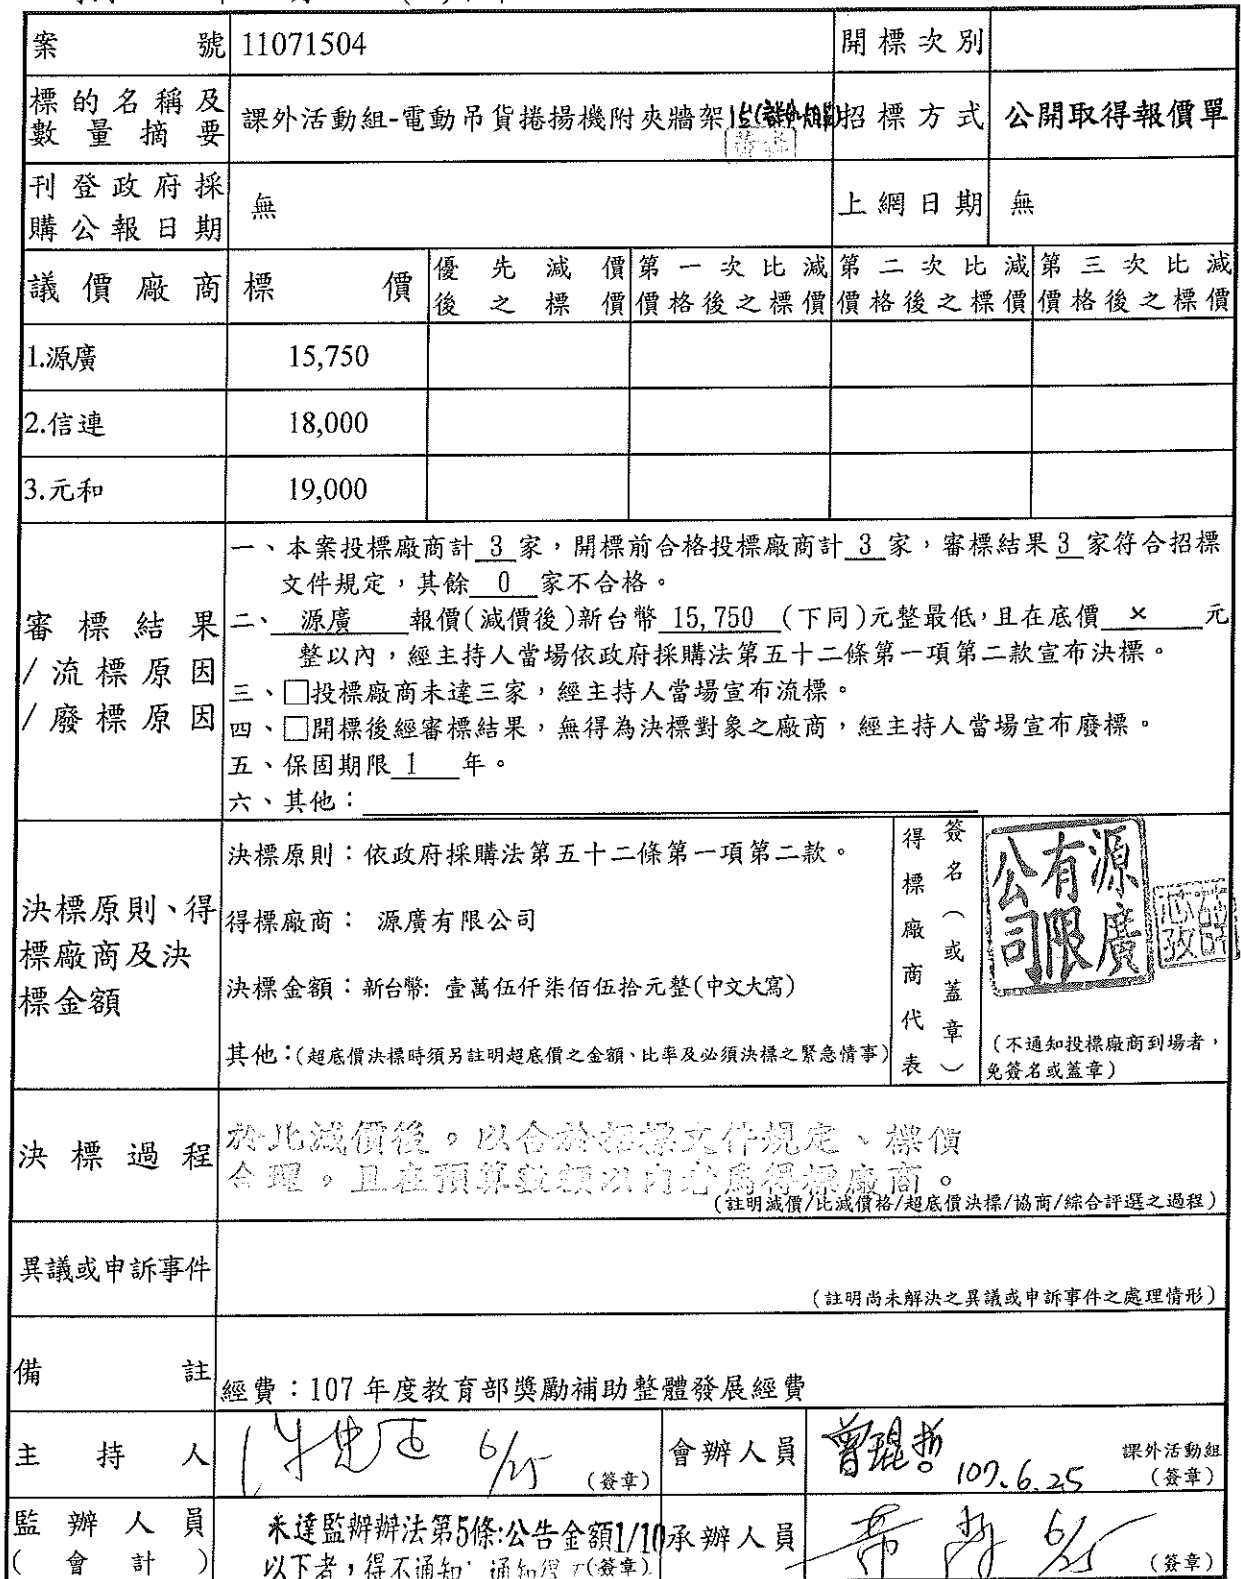 案號 11071504 開標次別
標的名稱及數量摘要 課外活動組-電動吊貨捲揚機附夾牆架 招標方式 公開取得報價單
刊登政府採購公報日期 無 上網日期 無
議價廠商 標價 優先減價後之標價 第一次比減價格後之標價 第二次比減價格後之標價 第三次比減價格後之標價
1.源廣 15,750
2.信連 18,000
3.元和 19,000
審標結果/流標原因/廢標原因
一、本案投標廠商計 3 家,開標前合格投標廠商計 3 家,審標結果 3 家符合招標
文件規定,其餘 0 家不合格。
二、 源廣 報價(減價後)新台幣 15,750 (下同)元整最低,且在底價 × 元
整以內,經主持人當場依政府採購法第五十二條第一項第二款宣布決標。
三、□投標廠商未達三家,經主持人當場宣布流標。
四、□開標後經審標結果,無得為決標對象之廠商,經主持人當場宣布廢標。
五、保固期限 1 年。
六、其他:
決標原則、得標廠商及決標金額
決標原則:依政府採購法第五十二條第一項第二款。
得標廠商: 源廣有限公司
決標金額:新台幣: 壹萬伍仟柒佰伍拾元整(中文大寫)
其他:(超底價決標時須另註明超底價之金額、比率及必須決標之緊急情事)
得標廠商代表
簽名(或蓋章)
源廣有限公司
(不通知投標廠商到場者,
免簽名或蓋章)
決標過程
於比減價後。以合於招標文件規定、標價
合理。且在預算數額以內者為得標廠商。
(註明減價/比減價格/超底價決標/協商/綜合評選之過程)
異議或申訴事件
(註明尚未解決之異議或申訴事件之處理情形)
備註
經費:107 年度教育部獎勵補助整體發展經費
主持人 6/25 (簽章) 會辦人員 曾琨哲 107.6.25 課外活動組
(簽章)
監辦人員
(會計)
未達監辦辦法第5條:公告金額1/10
以下者,得不通知
(簽章)
承辦人員 6/25 (簽章)